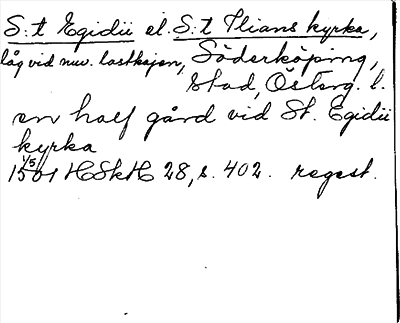 S:t Egidii el. S:t Ilians kyrka,
låg vid nuv. lastkajen, Söderköping,
Stad, Österg. l.
en half gård vid St. Egidii
kyrka
1/5
1501 HSkH 28, s. 402. regest.